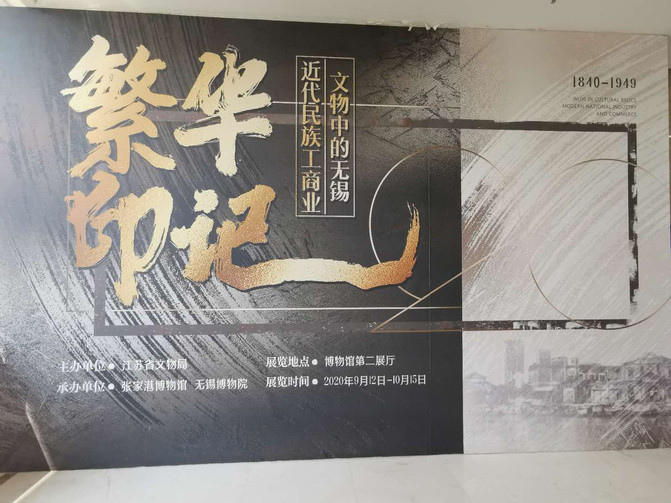 繁华
印记
文物中的无锡
近代民族工商业
1840-1949
WUXI IN CULTURAL RELICS
MODERN NATIONAL INDUSTRY
AND COMMERCE
主办单位● 江苏省文物局
承办单位● 张家港博物馆 无锡博物院
展览地点● 博物馆第二展厅
展览时间● 2020年9月12日-10月15日